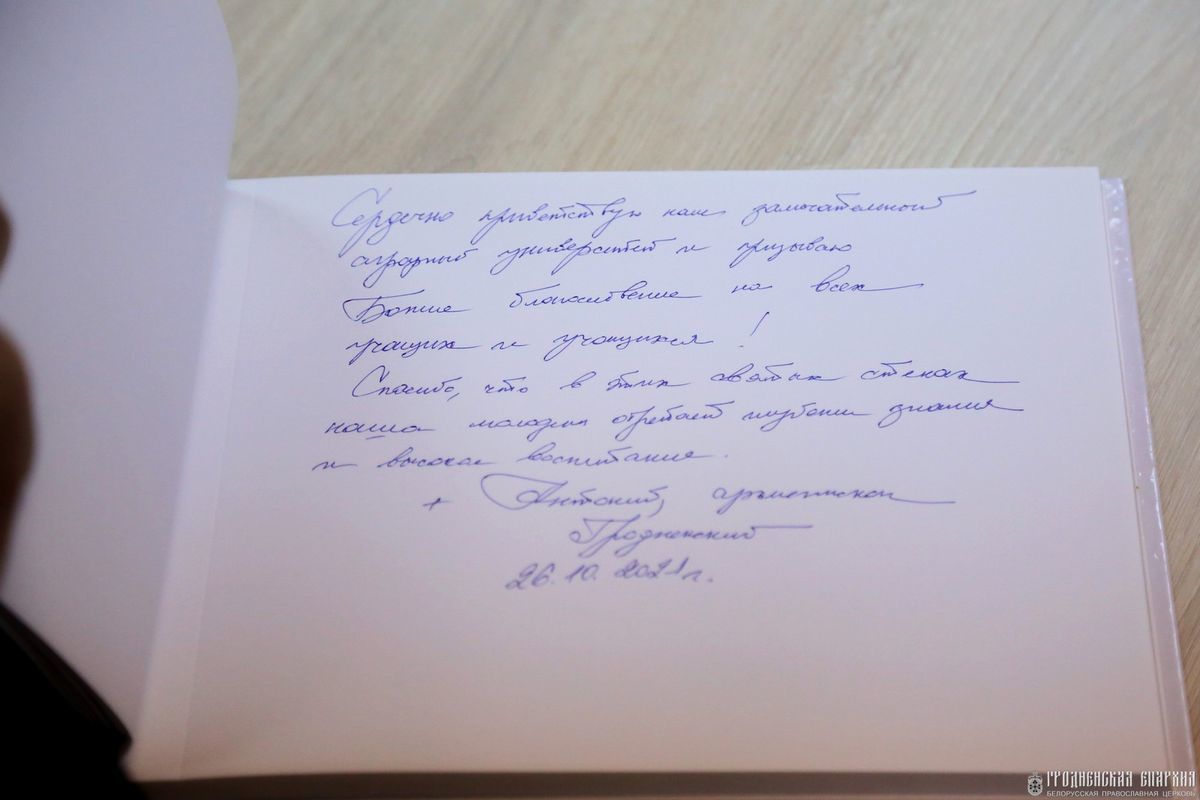 Сердечно приветствую наш замечательной
аграрный университет и призываю
Божие благословение на всех
учащих и учащихся!
Спасибо, что в этих святых стенах
наша молодежь обретает глубокие знания
и высокое воспитание.
+ Антоний, архиепископ
Гродненский
26.10.2021 г.
ГРОДНЕНСКАЯ ЕПАРХИЯ
БЕЛОРУССКАЯ ПРАВОСЛАВНАЯ ЦЕРКОВЬ